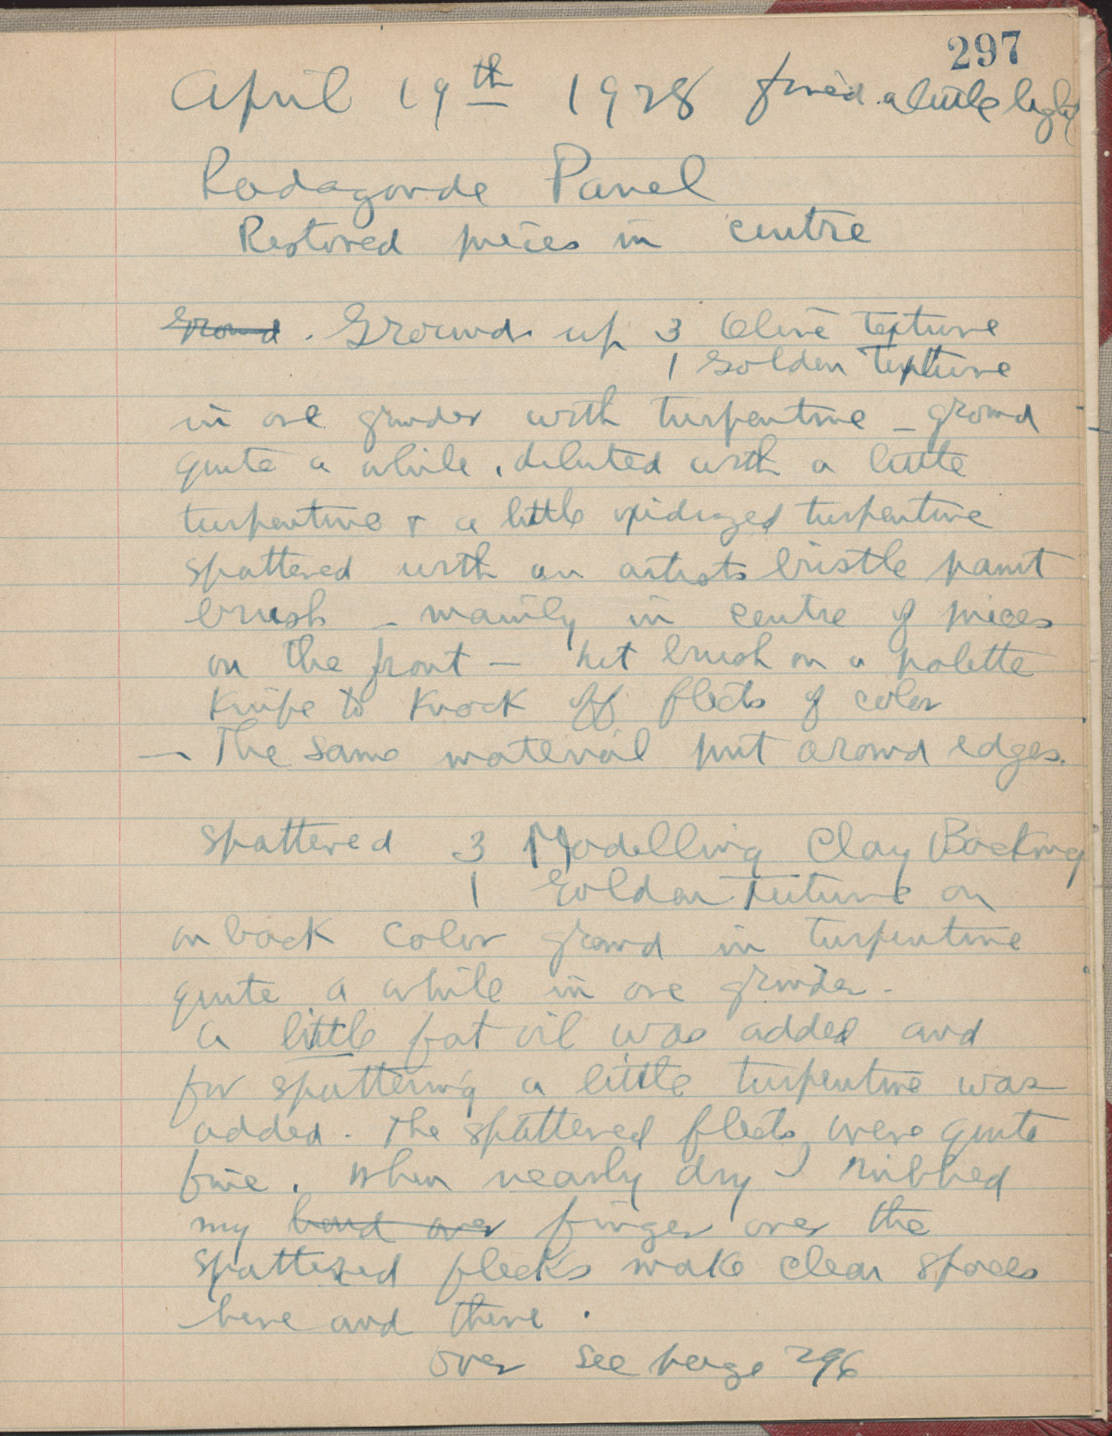 297
April 19th 1928 fired a little light
Radagonde Panel
Restored pieces in centre
Ground. Ground up 3 Olive Texture
1 Golden Texture
in one grinder with turpentine - ground
quite a while, diluted with a little
turpentine & a little oxidized turpentine
spattered with an artists bristle paint
brush - mainly in centre of pieces
on the front - hit brush on a palette
knife to knock off flects of color
- The same material put around edges.
spattered 3 Modelling Clay Backing
1 Golden Texture on
on back color ground in turpentine
quite a while in one grinder -
a little fat oil was added and
for spattering a little turpentine was
added. The spattered flects were quite
fine. When nearly dry I rubbed
my hand over finger over the
spattered flecks make clear spaces
here and there.
over see page 296